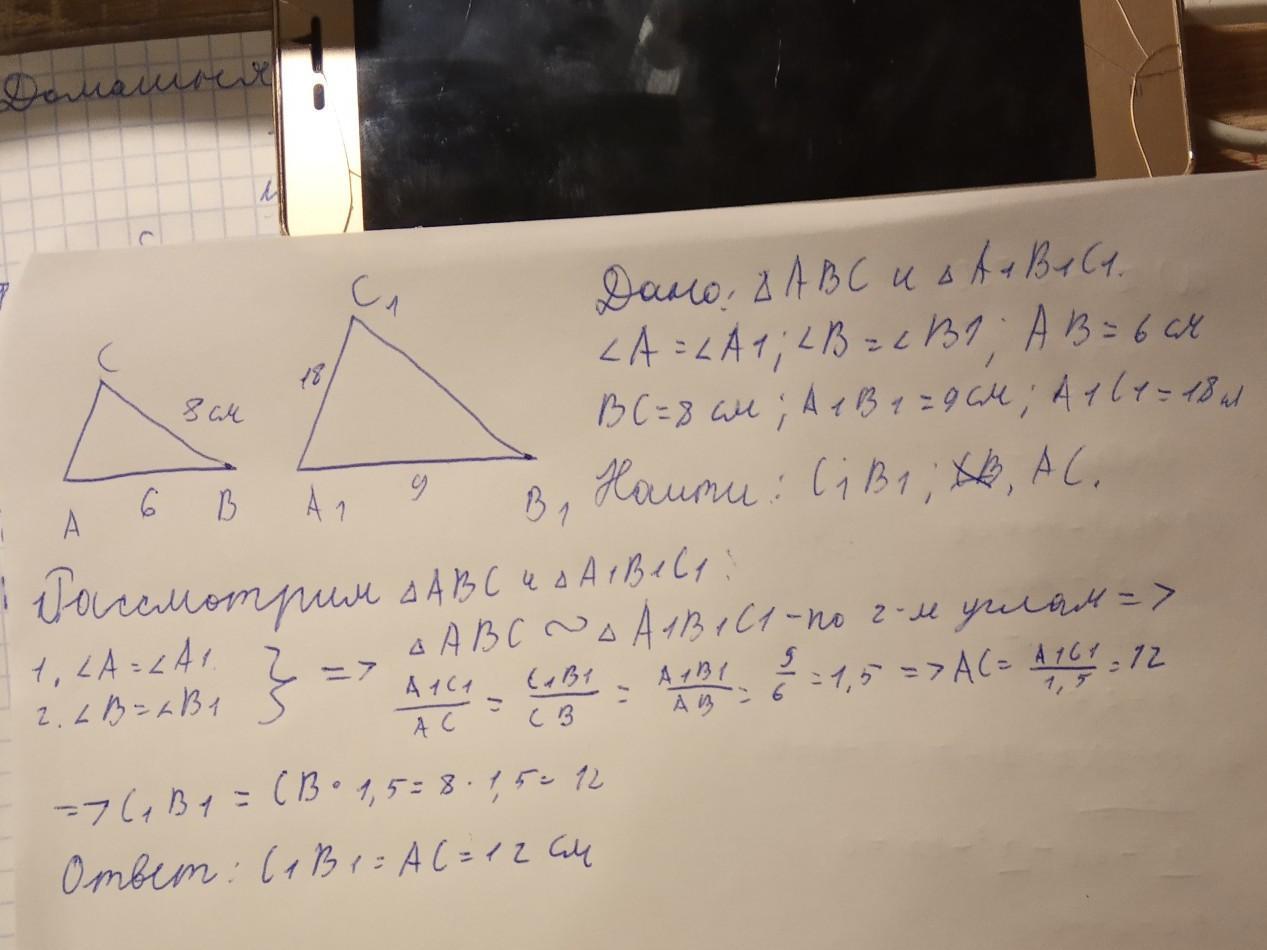 Домашняя
C
8 см
A
6
B
C1
18
A1
9
B1
Дано: ΔABC и ΔA1B1C1.
∠A=∠A1; ∠B=∠B1; AB=6 см
BC=8 см; A1B1=9 см; A1C1=18 см
Найти: C1B1; AC.
Рассмотрим ΔABC и ΔA1B1C1:
1. ∠A=∠A1.
2. ∠B=∠B1
} => ΔABC ~ ΔA1B1C1 - по 2-м углам =>
A1C1/AC = C1B1/CB = A1B1/AB = 9/6 = 1,5 => AC = A1C1/1,5 = 12
=> C1B1 = CB · 1,5 = 8 · 1,5 = 12
Ответ: C1B1 = AC = 12 см